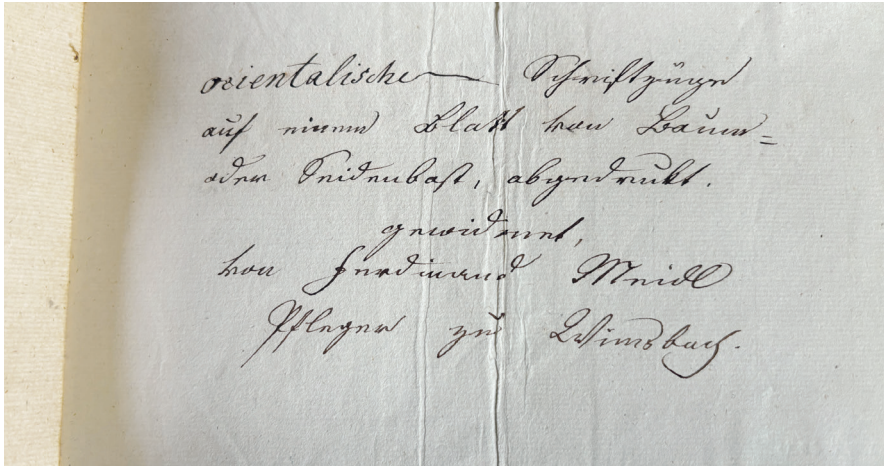 orientalische Schriftzüge
auf einem Blatt von Baum=
oder Seidenbast, abgedrukt.
gewidmet,
von Ferdinand Meidl
Pfleger zu Wimsbach.